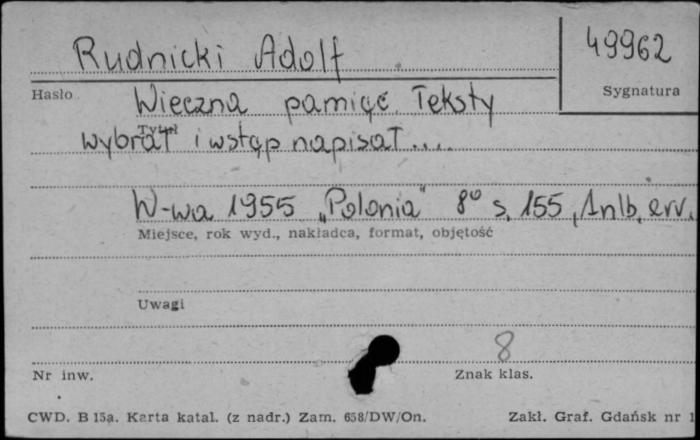 Rudnicki Adolf
49962
Hasło
Sygnatura
Wieczna pamięć. Teksty
Tytuł
wybrał i wstęp napisał....
W-wa 1955 „Polonia" 8° s. 155, 1nlb, err.
Miejsce, rok wyd., nakładca, format, objętość
Uwagi
8
Nr inw.
Znak klas.
CWD. B 15a. Karta katal. (z nadr.) Zam. 658/DW/On.
Zakł. Graf. Gdańsk nr 1